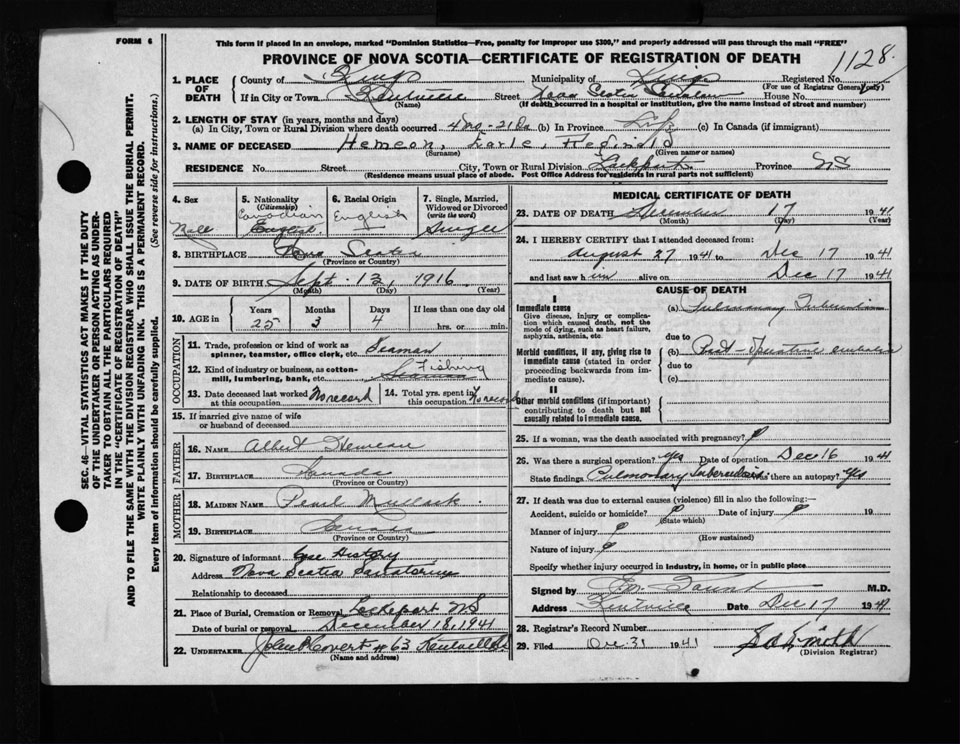 FORM 6
This form if placed in an envelope, marked "Dominion Statistics—Free, penalty for improper use $300," and properly addressed will pass through the mail "FREE"
PROVINCE OF NOVA SCOTIA—CERTIFICATE OF REGISTRATION OF DEATH
1128
1. PLACE OF DEATH County of Kings Municipality of Kings Registered No.
(For use of Registrar General only)
If in City or Town Kentville Street Nova Scotia Sanatorium House No.
(Name) (If death occurred in a hospital or institution, give the name instead of street and number)
2. LENGTH OF STAY (in years, months and days)
(a) In City, Town or Rural Division where death occurred 4 mo - 21 Da (b) In Province Life (c) In Canada (if immigrant)
3. NAME OF DECEASED Hemeon, Earle, Reginald
(Surname) (Given name or names)
RESIDENCE No. Street City, Town or Rural Division Lockeport Province NS
(Residence means usual place of abode. Post Office Address for residents in rural parts not sufficient)
4. Sex 5. Nationality (Citizenship) 6. Racial Origin 7. Single, Married, Widowed or Divorced (write the word)
Male Canadian English English Single
8. BIRTHPLACE Nova Scotia
(Province or Country)
9. DATE OF BIRTH Sept. 13, 1916
(Month) (Day) (Year)
10. AGE in Years Months Days If less than one day old
25 3 4 hrs. or min.
OCCUPATION
11. Trade, profession or kind of work as spinner, teamster, office clerk, etc. Seaman
12. Kind of industry or business, as cotton-mill, lumbering, bank, etc. Fishing
13. Date deceased last worked at this occupation No record 14. Total yrs. spent in this occupation No record
15. If married give name of wife or husband of deceased
FATHER
16. NAME Albert Hemeon
17. BIRTHPLACE Canada
(Province or Country)
MOTHER
18. MAIDEN NAME Pearl
19. BIRTHPLACE Canada
(Province or Country)
20. Signature of informant Case History
Address Nova Scotia Sanatorium
Relationship to deceased
21. Place of Burial, Cremation or Removal Lockeport NS
Date of burial or removal December 18, 1941
22. UNDERTAKER John Covert #63 Kentville NS
(Name and address)
MEDICAL CERTIFICATE OF DEATH
23. DATE OF DEATH December 17 1941
(Month) (Day)
24. I HEREBY CERTIFY that I attended deceased from:
August 27 1941 to Dec 17 1941
and last saw him alive on Dec 17 1941
CAUSE OF DEATH
I
Immediate cause (a) Pulmonary Tuberculosis
Give disease, injury or complication which caused death, not the mode of dying, such as heart failure, asphyxia, asthenia, etc.
due to
Morbid conditions, if any, giving rise to immediate cause (stated in order proceeding backwards from immediate cause). (b) Post-operative embolism
due to
(c)
II
Other morbid conditions (if important) contributing to death but not causally related to immediate cause.
25. If a woman, was the death associated with pregnancy?
26. Was there a surgical operation? Yes Date of operation Dec 16 1941
State findings Pulmonary tuberculosis Was there an autopsy? Yes
27. If death was due to external causes (violence) fill in also the following:—
Accident, suicide or homicide? Date of injury 19
(State which)
Manner of injury
(How sustained)
Nature of injury
Specify whether injury occurred in industry, in home, or in public place
Signed by M.D.
Address Kentville Date Dec 17 1941
28. Registrar's Record Number
29. Filed Dec 31 1941 Smith
(Division Registrar)
SEC. 46—VITAL STATISTICS ACT MAKES IT THE DUTY
OF THE UNDERTAKER OR PERSON ACTING AS UNDER-
TAKER TO OBTAIN ALL THE PARTICULARS REQUIRED
IN THE "CERTIFICATE OF REGISTRATION OF DEATH"
AND TO FILE THE SAME WITH THE DIVISION REGISTRAR WHO SHALL ISSUE THE BURIAL PERMIT.
WRITE PLAINLY WITH UNFADING INK. THIS IS A PERMANENT RECORD.
Every item of information should be carefully supplied. (See reverse side for instructions.)